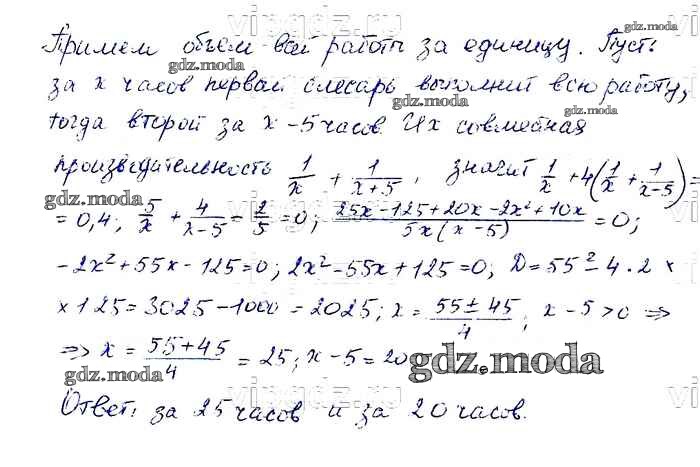 Примем объём всей работы за единицу. Пусть
за x часов первый слесарь выполнит всю работу,
тогда второй за x - 5 часов. Их совместная
производительность 1/x + 1/(x+5), значит 1/x + 4(1/x + 1/(x-5)) =
= 0,4; 5/x + 4/(x-5) - 2/5 = 0; (25x - 125 + 20x - 2x² + 10x)/(5x(x-5)) = 0;
-2x² + 55x - 125 = 0; 2x² - 55x + 125 = 0; D = 55² - 4·2 ×
× 125 = 3025 - 1000 = 2025; x = (55 ± 45)/4; x - 5 > 0 ⇒
⇒ x = (55 + 45)/4 = 25; x - 5 = 20
Ответ: за 25 часов и за 20 часов.
vipgdz.ru
gdz.moda
gdz.moda
gdz.moda
gdz.moda
gdz.moda
gdz.moda
gdz.moda
vipgdz.ru